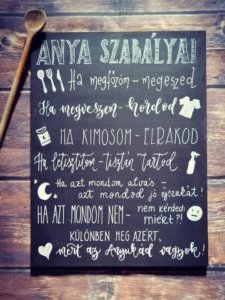 ANYA SZABÁLYAI
Ha megfőzöm - megeszed
Ha megveszem - hordod
HA KIMOSOM - ELRAKOD
Ha letisztítom - tisztán tartod
Ha azt mondom alvás -
azt mondod jó éjszakát!
HA AZT MONDOM NEM - nem kérded:
miért?!
KÜLÖNBEN MEG AZÉRT,
mert az Anyukád vagyok!